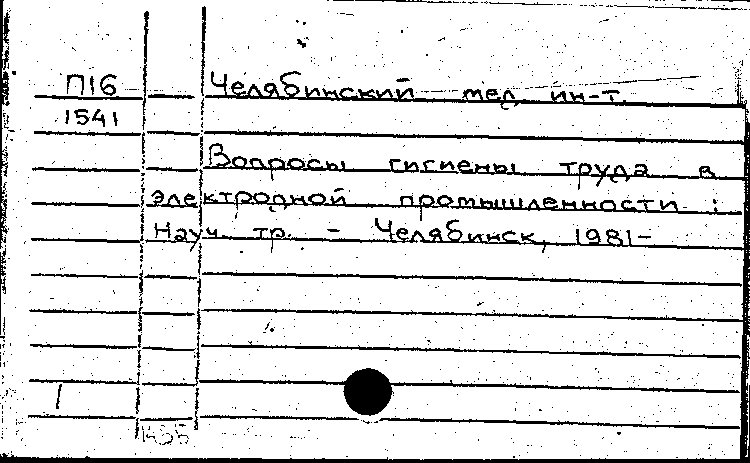 П16 Челябинский мед. ин-т.
1541
Вопросы гигиены труда в
электродной промышленности :
Науч. тр. - Челябинск, 1981-
1
1435